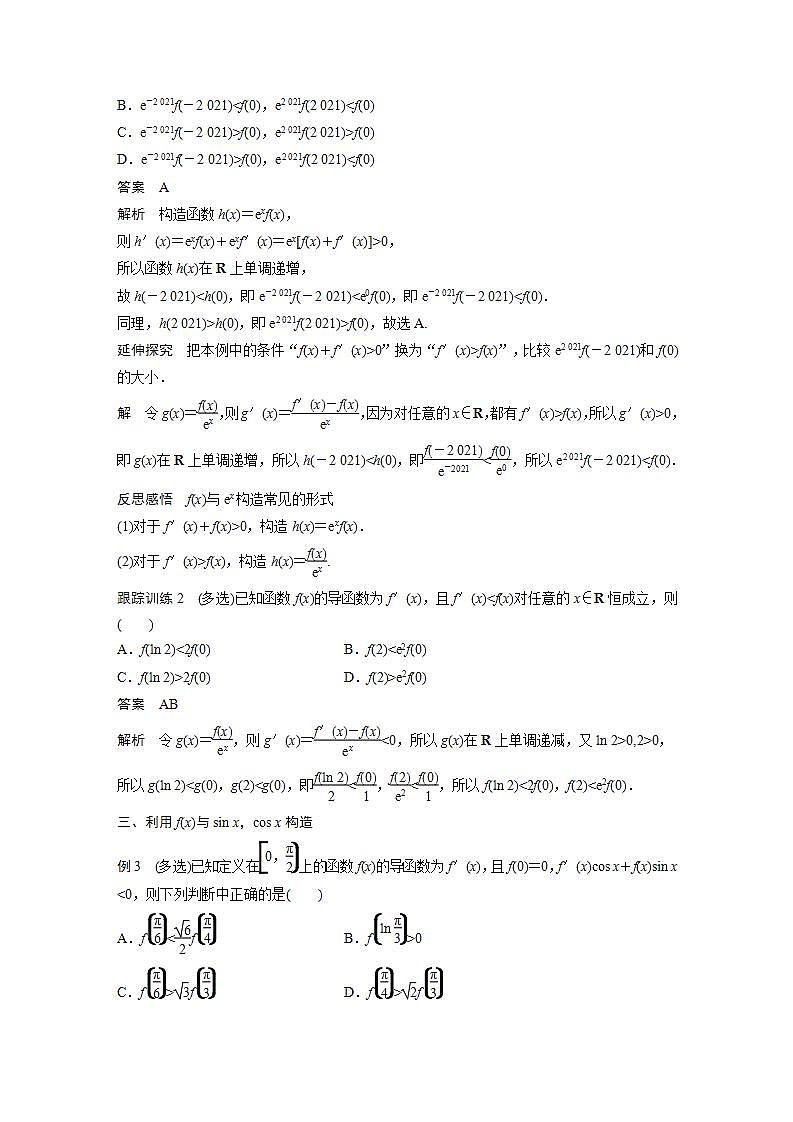 B．e⁻²⁰²¹f(－2 021)<f(0)，e²⁰²¹f(2 021)<f(0)
C．e⁻²⁰²¹f(－2 021)>f(0)，e²⁰²¹f(2 021)>f(0)
D．e⁻²⁰²¹f(－2 021)>f(0)，e²⁰²¹f(2 021)<f(0)
答案　A
解析　构造函数 h(x)＝eˣf(x)，
则 h′(x)＝eˣf(x)＋eˣf′(x)＝eˣ[f(x)＋f′(x)]>0，
所以函数 h(x)在 R 上单调递增，
故 h(－2 021)<h(0)，即 e⁻²⁰²¹f(－2 021)<e⁰f(0)，即 e⁻²⁰²¹f(－2 021)<f(0)．
同理，h(2 021)>h(0)，即 e²⁰²¹f(2 021)>f(0)，故选 A.
延伸探究　把本例中的条件“f(x)＋f′(x)>0”换为“f′(x)>f(x)”，比较 e²⁰²¹f(－2 021)和 f(0)
的大小．
解　令 g(x)＝f(x)/eˣ，则 g′(x)＝(f′(x)－f(x))/eˣ，因为对任意的 x∈R，都有 f′(x)>f(x)，所以 g′(x)>0，
即 g(x)在 R 上单调递增，所以 h(－2 021)<h(0)，即f(－2 021)/e⁻²⁰²¹<f(0)/e⁰，所以 e²⁰²¹f(－2 021)<f(0)．
反思感悟　f(x)与 eˣ构造常见的形式
(1)对于 f′(x)＋f(x)>0，构造 h(x)＝eˣf(x)．
(2)对于 f′(x)>f(x)，构造 h(x)＝f(x)/eˣ.
跟踪训练 2　(多选)已知函数 f(x)的导函数为 f′(x)，且 f′(x)<f(x)对任意的 x∈R 恒成立，则
(　　)
A．f(ln 2)<2f(0)　　B．f(2)<e²f(0)
C．f(ln 2)>2f(0)　　D．f(2)>e²f(0)
答案　AB
解析　令 g(x)＝f(x)/eˣ，则 g′(x)＝(f′(x)－f(x))/eˣ<0，所以 g(x)在 R 上单调递减，又 ln 2>0,2>0，
所以 g(ln 2)<g(0)，g(2)<g(0)，即f(ln 2)/2<f(0)/1，f(2)/e²<f(0)/1，所以 f(ln 2)<2f(0)，f(2)<e²f(0)．
三、利用 f(x)与 sin x，cos x 构造
例 3　(多选)已知定义在[0，π/2)上的函数 f(x)的导函数为 f′(x)，且 f(0)＝0，f′(x)cos x＋f(x)sin x
<0，则下列判断中正确的是(　　)
A．f(π/6)<√6/2f(π/4)　　B．f(ln π/3)>0
C．f(π/6)>√3f(π/3)　　D．f(π/4)>√2f(π/3)